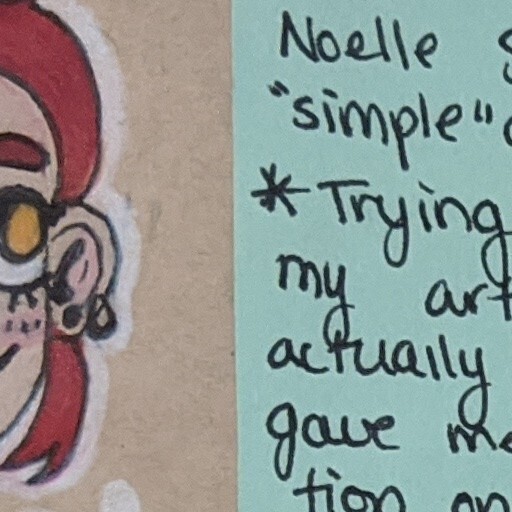 Noelle
"simple"
* Trying
my art
actually
gave me
tion on